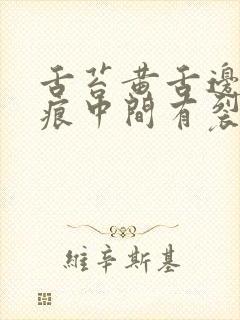 舌苔黄舌邊
痕中間有裂
維辛斯基